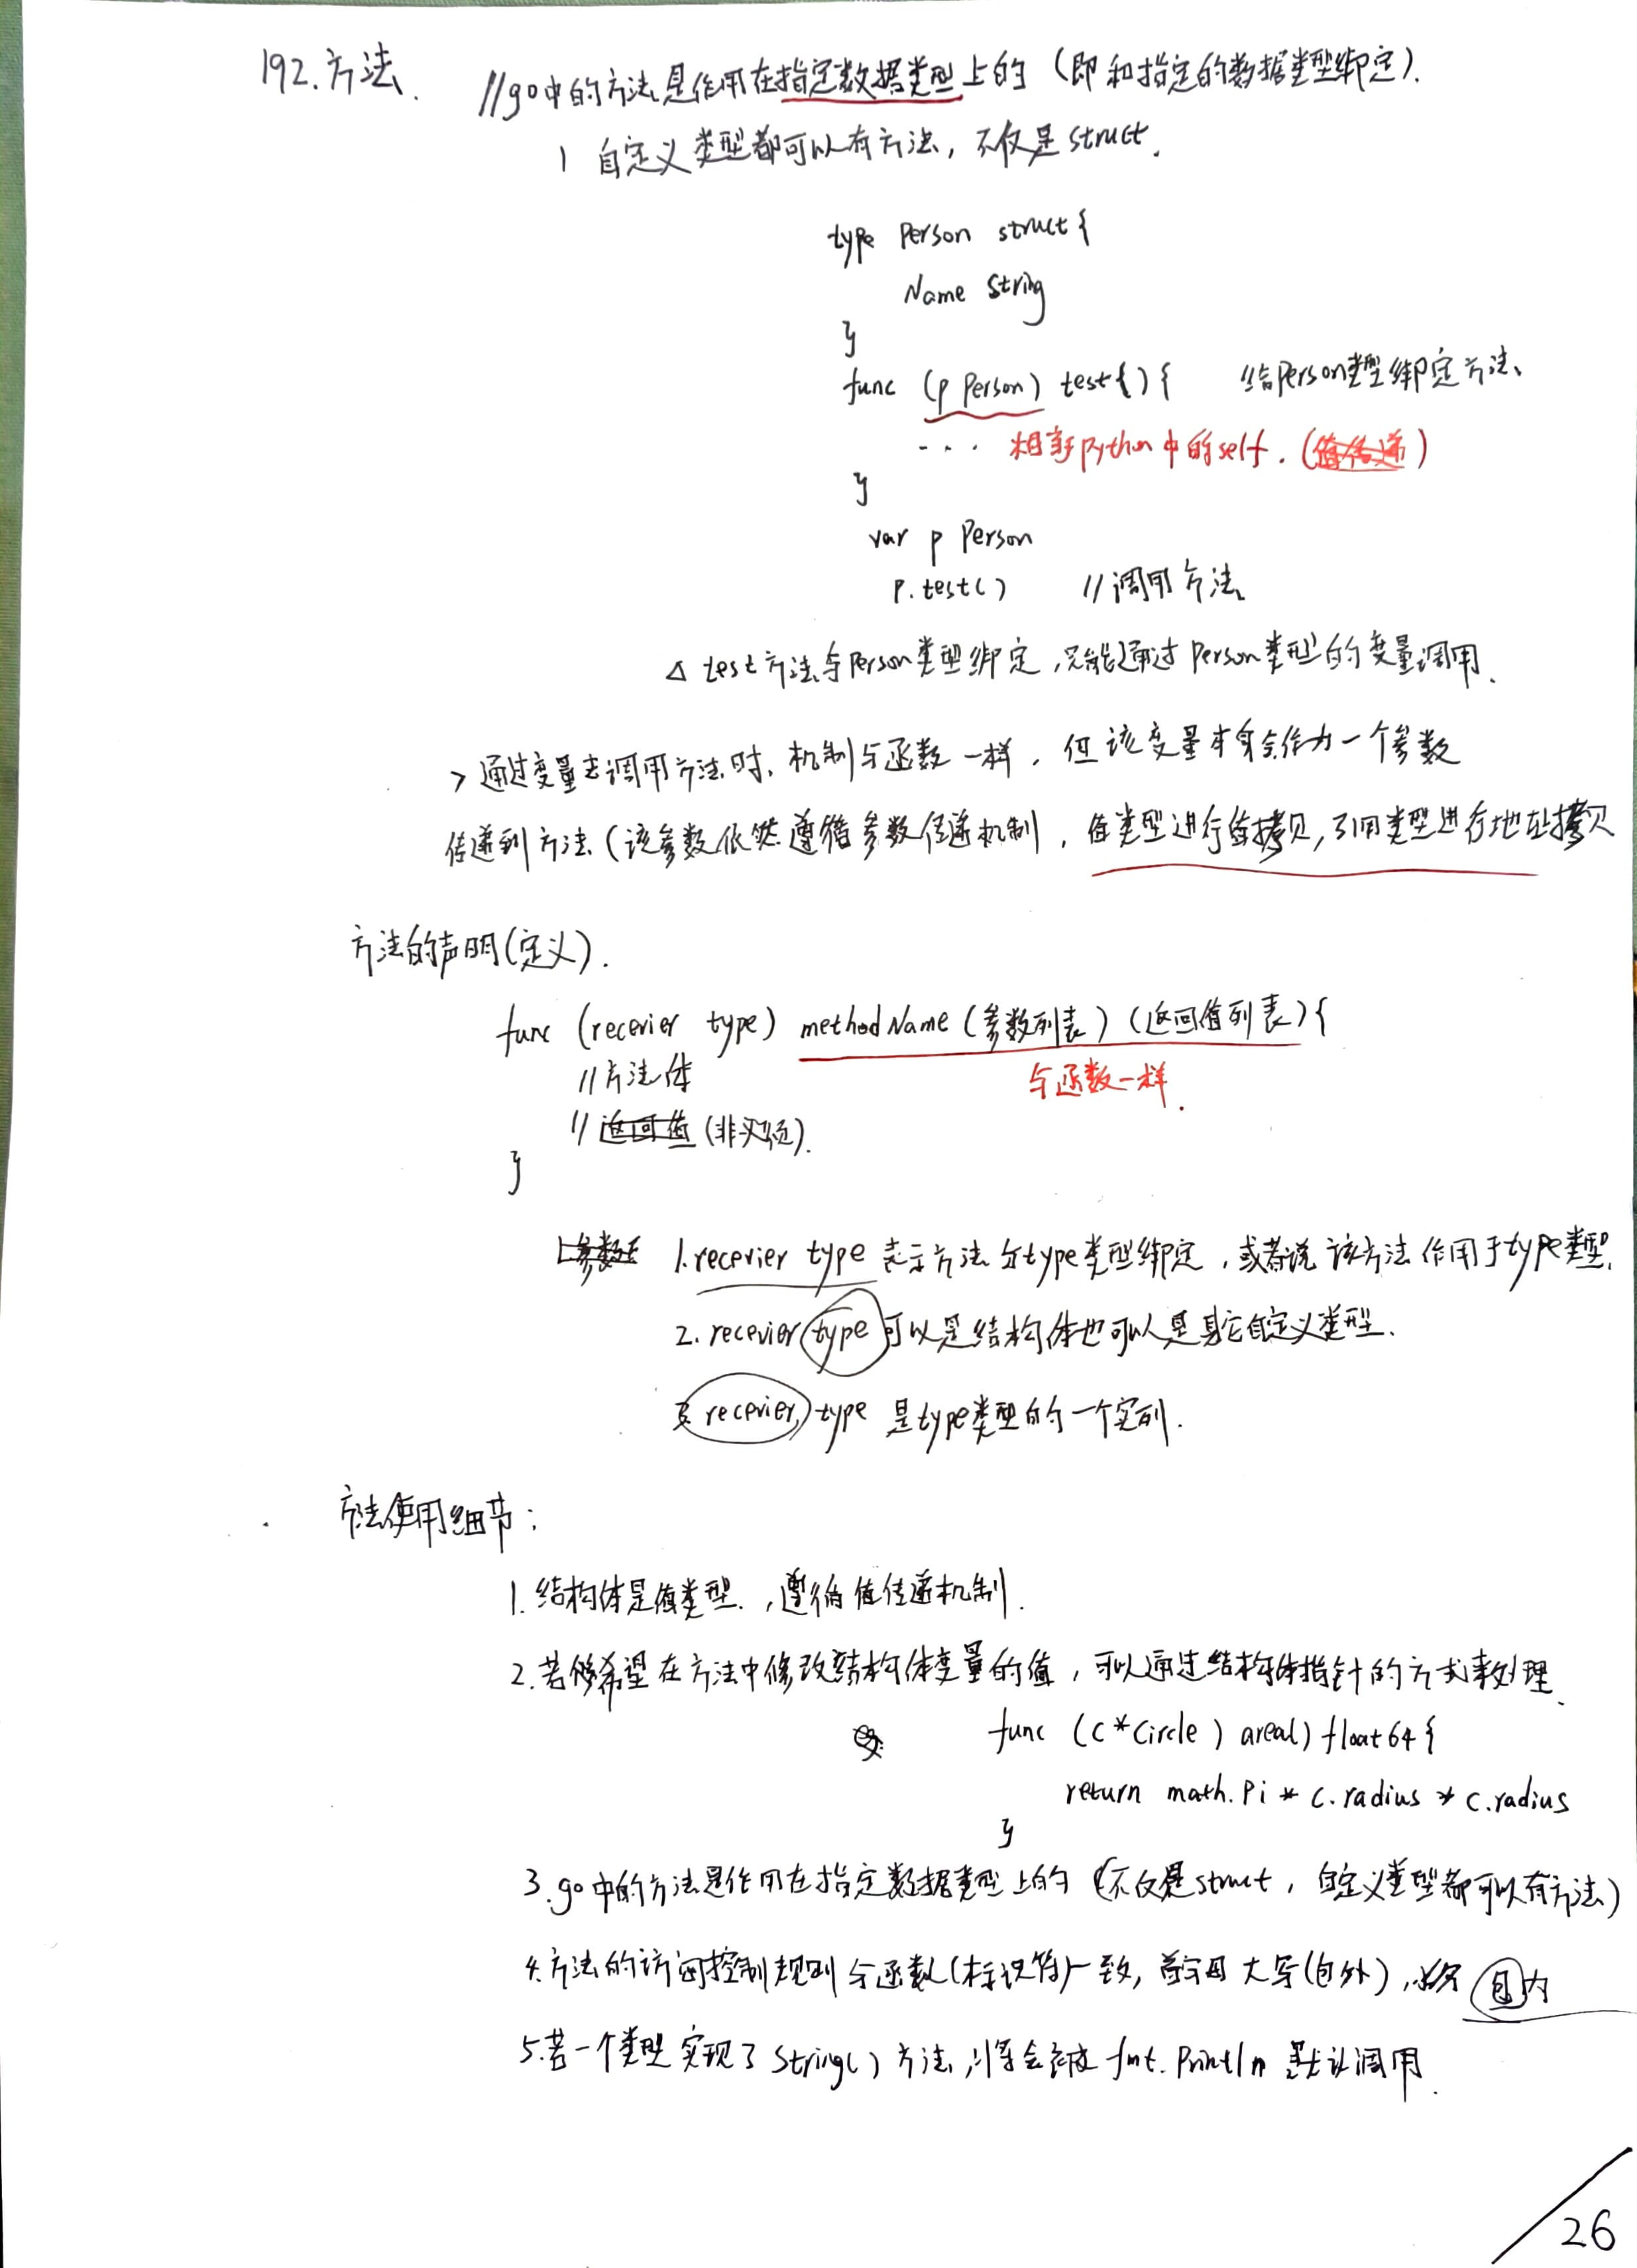 192.方法. //go中的方法是作用在指定数据类型上的（即和指定的数据类型绑定).
1 自定义类型都可以有方法，不仅是struct.
type Person struct{
Name String
}
func (p Person) test(){ //给Person类型绑定方法、
.... 相当于python中的self. (值传递)
}
var p Person
p.test() //调用方法
△ test方法与Person类型绑定,只能通过Person类型的变量调用.
> 通过变量去调用方法时，机制与函数一样，但该变量本身会作为一个参数
传递到方法（该参数依然遵循参数传递机制，值类型进行值拷贝,引用类型进行地址拷贝
方法的声明(定义).
func (recevier type) methodName (参数列表) (返回值列表){
//方法体 与函数一样.
// 返回值 (非必须).
}
1.参数 1.recevier type 表示方法与type类型绑定，或者说该方法作用于type类型.
2. recevier type 可以是结构体也可以是其它自定义类型.
3 recevier, type 是type类型的一个实例.
方法使用细节:
1.结构体是值类型.,遵循值传递机制.
2.若希望在方法中修改结构体变量的值，可以通过结构体指针的方式来处理.
func (c *Circle) area() float64 {
return math.Pi * c.radius * c.radius
}
3.go中的方法是作用在指定数据类型上的 (不仅是struct，自定义类型都可以有方法)
4.方法的访问控制规则与函数(标识符)一致, 首字母大写(包外), 包内
5.若一个类型实现了String()方法,将会被fmt.Println默认调用.
26